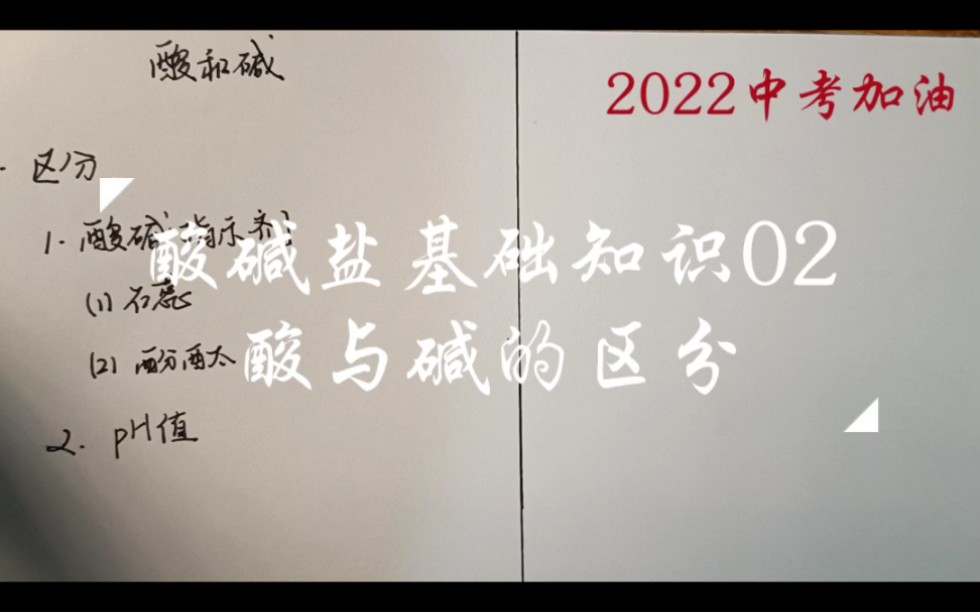 酸和碱
2022中考加油
区分
1. 酸碱指示剂
酸碱盐基础知识02
(1) 石蕊
(2) 酚酞
酸与碱的区分
2. pH值